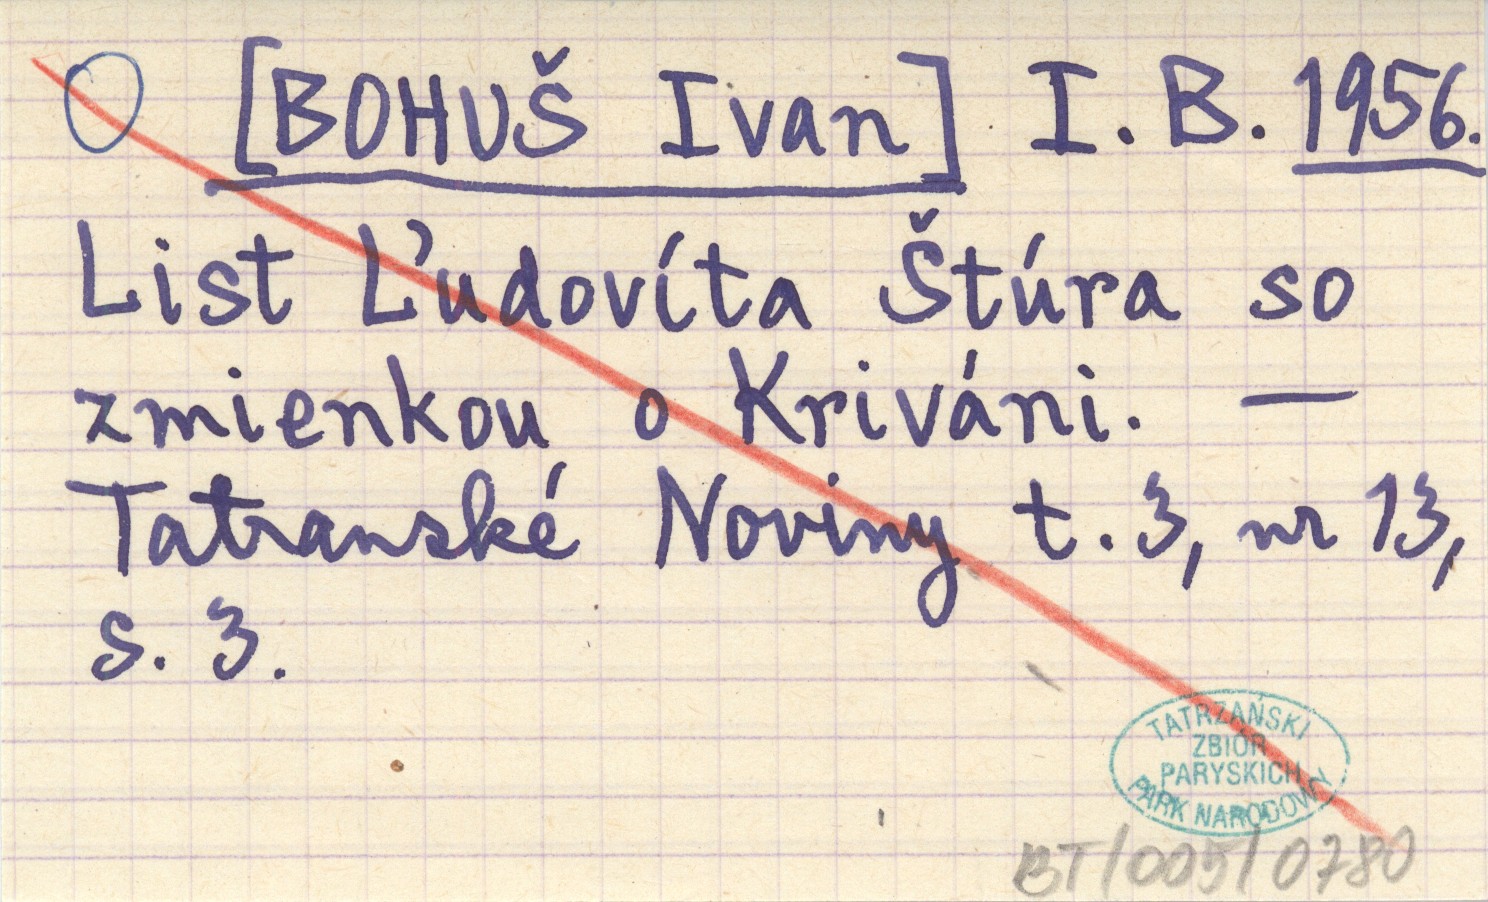 [BOHUŠ Ivan] I. B. 1956.
List Ľudovíta Štúra so
zmienkou o Kriváni. —
Tatranské Noviny t. 3, nr 13,
s. 3.
TATRZAŃSKI
ZBIÓR
PARYSKICH
PARK NARODOWY
BT/005/0780